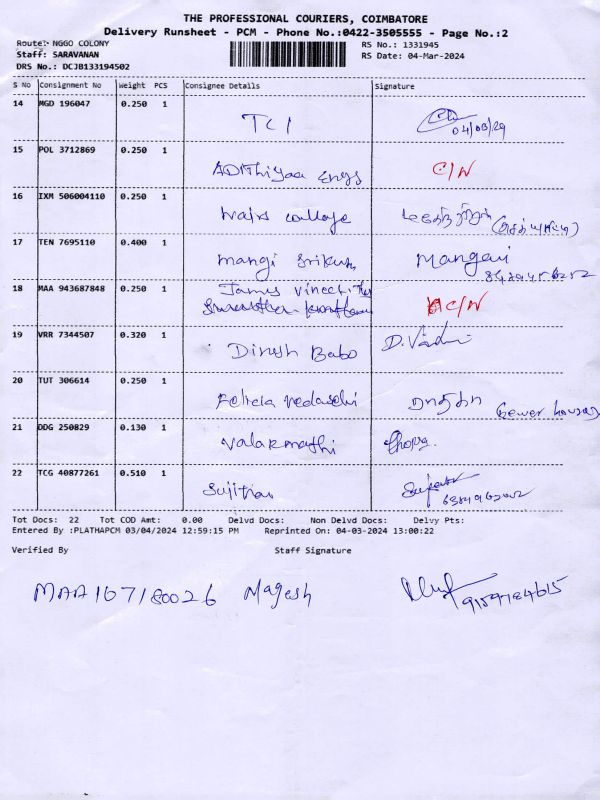 THE PROFESSIONAL COURIERS, COIMBATORE
Delivery Runsheet - PCM - Phone No.:0422-3505555 - Page No.:2
Route:- NGGO COLONY
Staff: SARAVANAN
DRS No.: DCJB133194502
RS No.: 1331945
RS Date: 04-Mar-2024
S No Consignment No Weight PCS Consignee Details Signature
14 MGD 196047 0.250 1 TCI
15 POL 3712869 0.250 1 ADIThiyaa Engg C/N
16 IXM 506004110 0.250 1 college
17 TEN 7695110 0.400 1 mangi Mangai
18 MAA 943687848 0.250 1 James C/N
19 VRR 7344507 0.320 1 Dinesh Babo D.
20 TUT 306614 0.250 1
21 DDG 250829 0.130 1 Valarmathi
22 TCG 40877261 0.510 1
Tot Docs: 22 Tot COD Amt: 0.00 Delvd Docs: Non Delvd Docs: Delvy Pts:
Entered By :PLATHAPCM 03/04/2024 12:59:15 PM Reprinted On: 04-03-2024 13:00:22
Verified By Staff Signature
MAA 107180026 Magesh